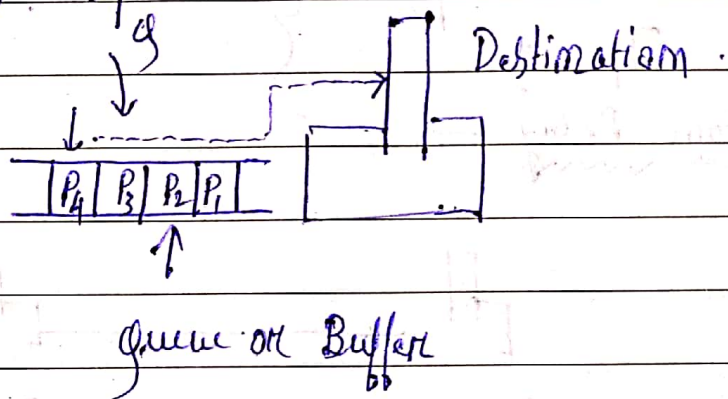 Destination.
P4 P3 P2 P1
Queue or Buffer